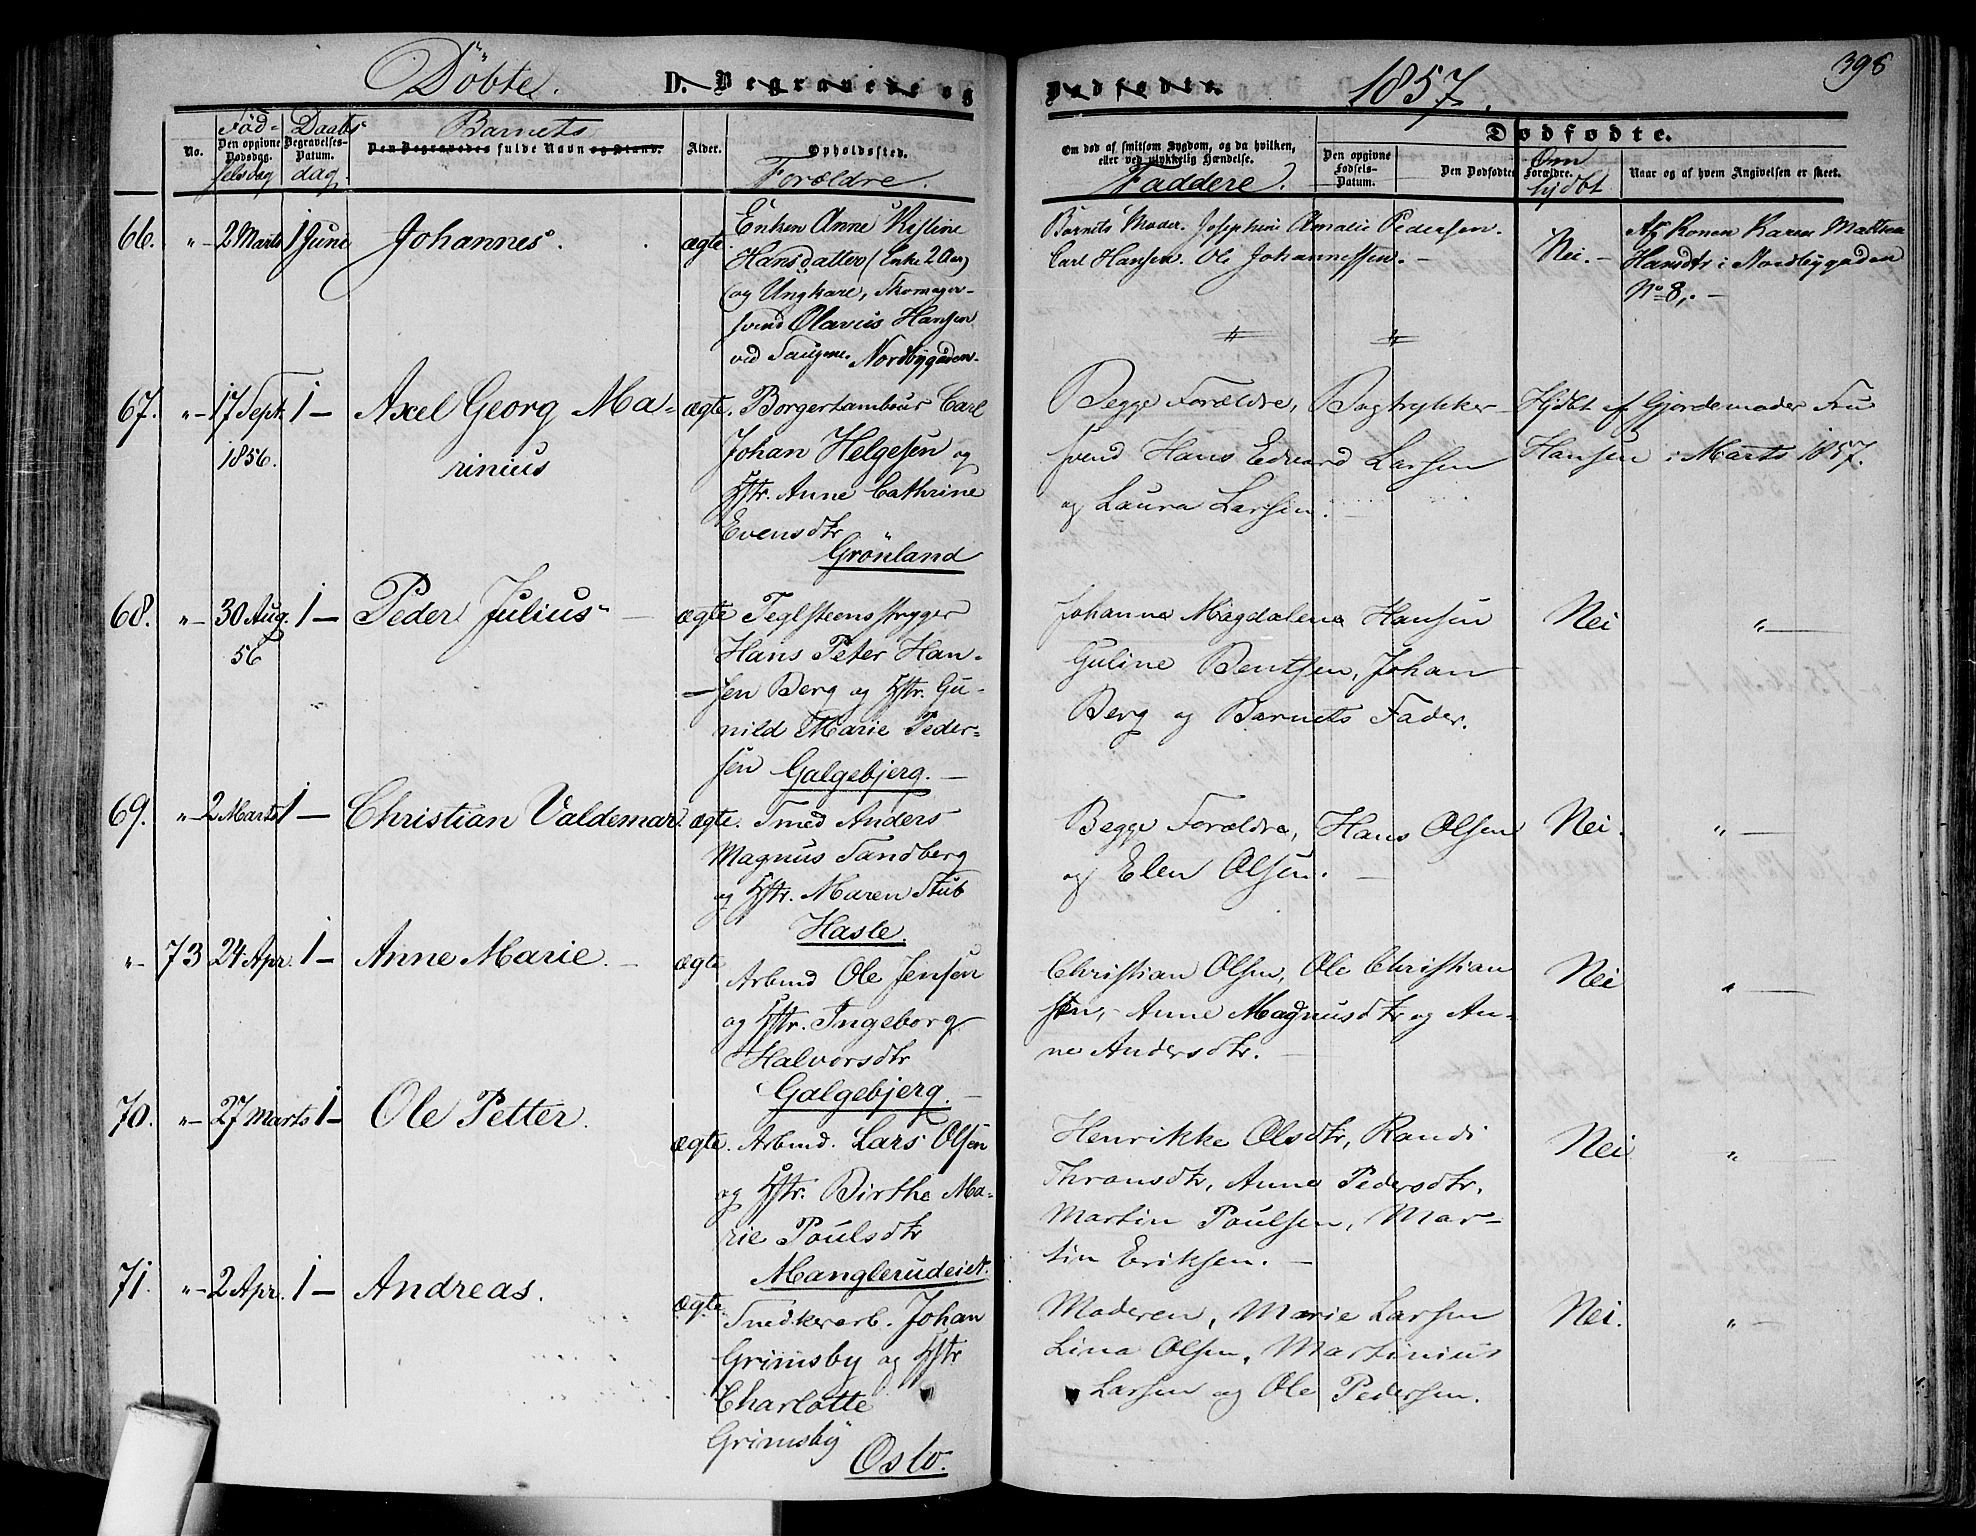 Döbte. D. Begravede og Dødfødte. 1857. 398
No. Fød- Daabs Barnets
Den opgivne Dødsdag. Begravelses-Datum. Den Begravedes fulde Navn og Stand. Alder. Opholdssted.
selsdag dag. Forældre.
Om død af smitsom Sygdom, og da hvilken, eller ved ulykkelig Hændelse. Faddere. Dødfødte.
Den opgivne Fødsels-Datum. Den Dødfødtes Forældre. Om hjdbt Naar og af hvem Angivelsen er skeet.
66. „- 2 Marts 1 Juni Johannes. ægte.
Enken Anne Kistine
Hansdatter (Enke 2 Aar)
og Ungkare, Skomager-
svend Olavus Hansen
ved Saugene. Nordbygaden.
Barnets Moder. Josephine Amalie Pedersen.
Carl Hansen. Ole Johannessen.-
Nei.-
Af Konen Karen Mattea
Hansdtr i Nordbygaden
No 8.-
67. „- 17 Sept. 1 - Axel Georg Ma-
1856. rinius
ægte. Borgertambour Carl
Johan Helgesen og
Hstr. Anne Cathrine
Evensdtr
Grönland
Begge Forældre, Bogtrykker-
svend Hans Edvard Larsen
og Laura Larsen.
Hjdbt af Gjordemoder Fru
Hansen i Marts 1857.
68. „- 30 Aug. 1 - Peder Julius -
56
ægte Teglsteensstryger
Hans Peter Han-
sen Berg og Hstr. Gu-
nild Marie Peder-
sen Galgebjerg. -
Johanne Magdalene Hansen
Guline Bentsen, Johan
Berg og Barnets Fader.
Nei „-
69. „- 2 Marts 1 - Christian Valdemar. ægte. Smed Anders
Magnus Sandberg
og Hstr. Maren Stub
Hasle.
Begge Forældre, Hans Olsen
og Elen Olsen. -
Nei. „-
„- 73 24 Apr. 1 - Anne Marie. - ægte
Arbmd Ole Jensen
og Hstr. Ingeborg
Halvorsdtr
Galgebjerg. -
Christian Olsen, Ole Christian
sen, Anne Magnusdtr og An-
ne Andersdtr. -
Nei „-
70. „- 27 Marts 1 - Ole Petter.
ægte. Arbmd. Lars Olsen
og Hstr. Birthe Ma-
rie Poulsdtr
Manglerudeiet.
Henrikke Olsdtr, Randi
Thronsdtr, Anne Pedersdtr,
Martin Poulsen, Mar-
tin Eriksen. -
Nei „-
71. „- 2 Apr. 1 - Andreas.
ægte. Snedkerarb. Johan
Grimsby og Hstr
Charlotte
Grimsby
Oslo.
Moderen, Marie Larsen
Lina Olsen, Martinius
Larsen og Ole Pedersen.
Nei. „-